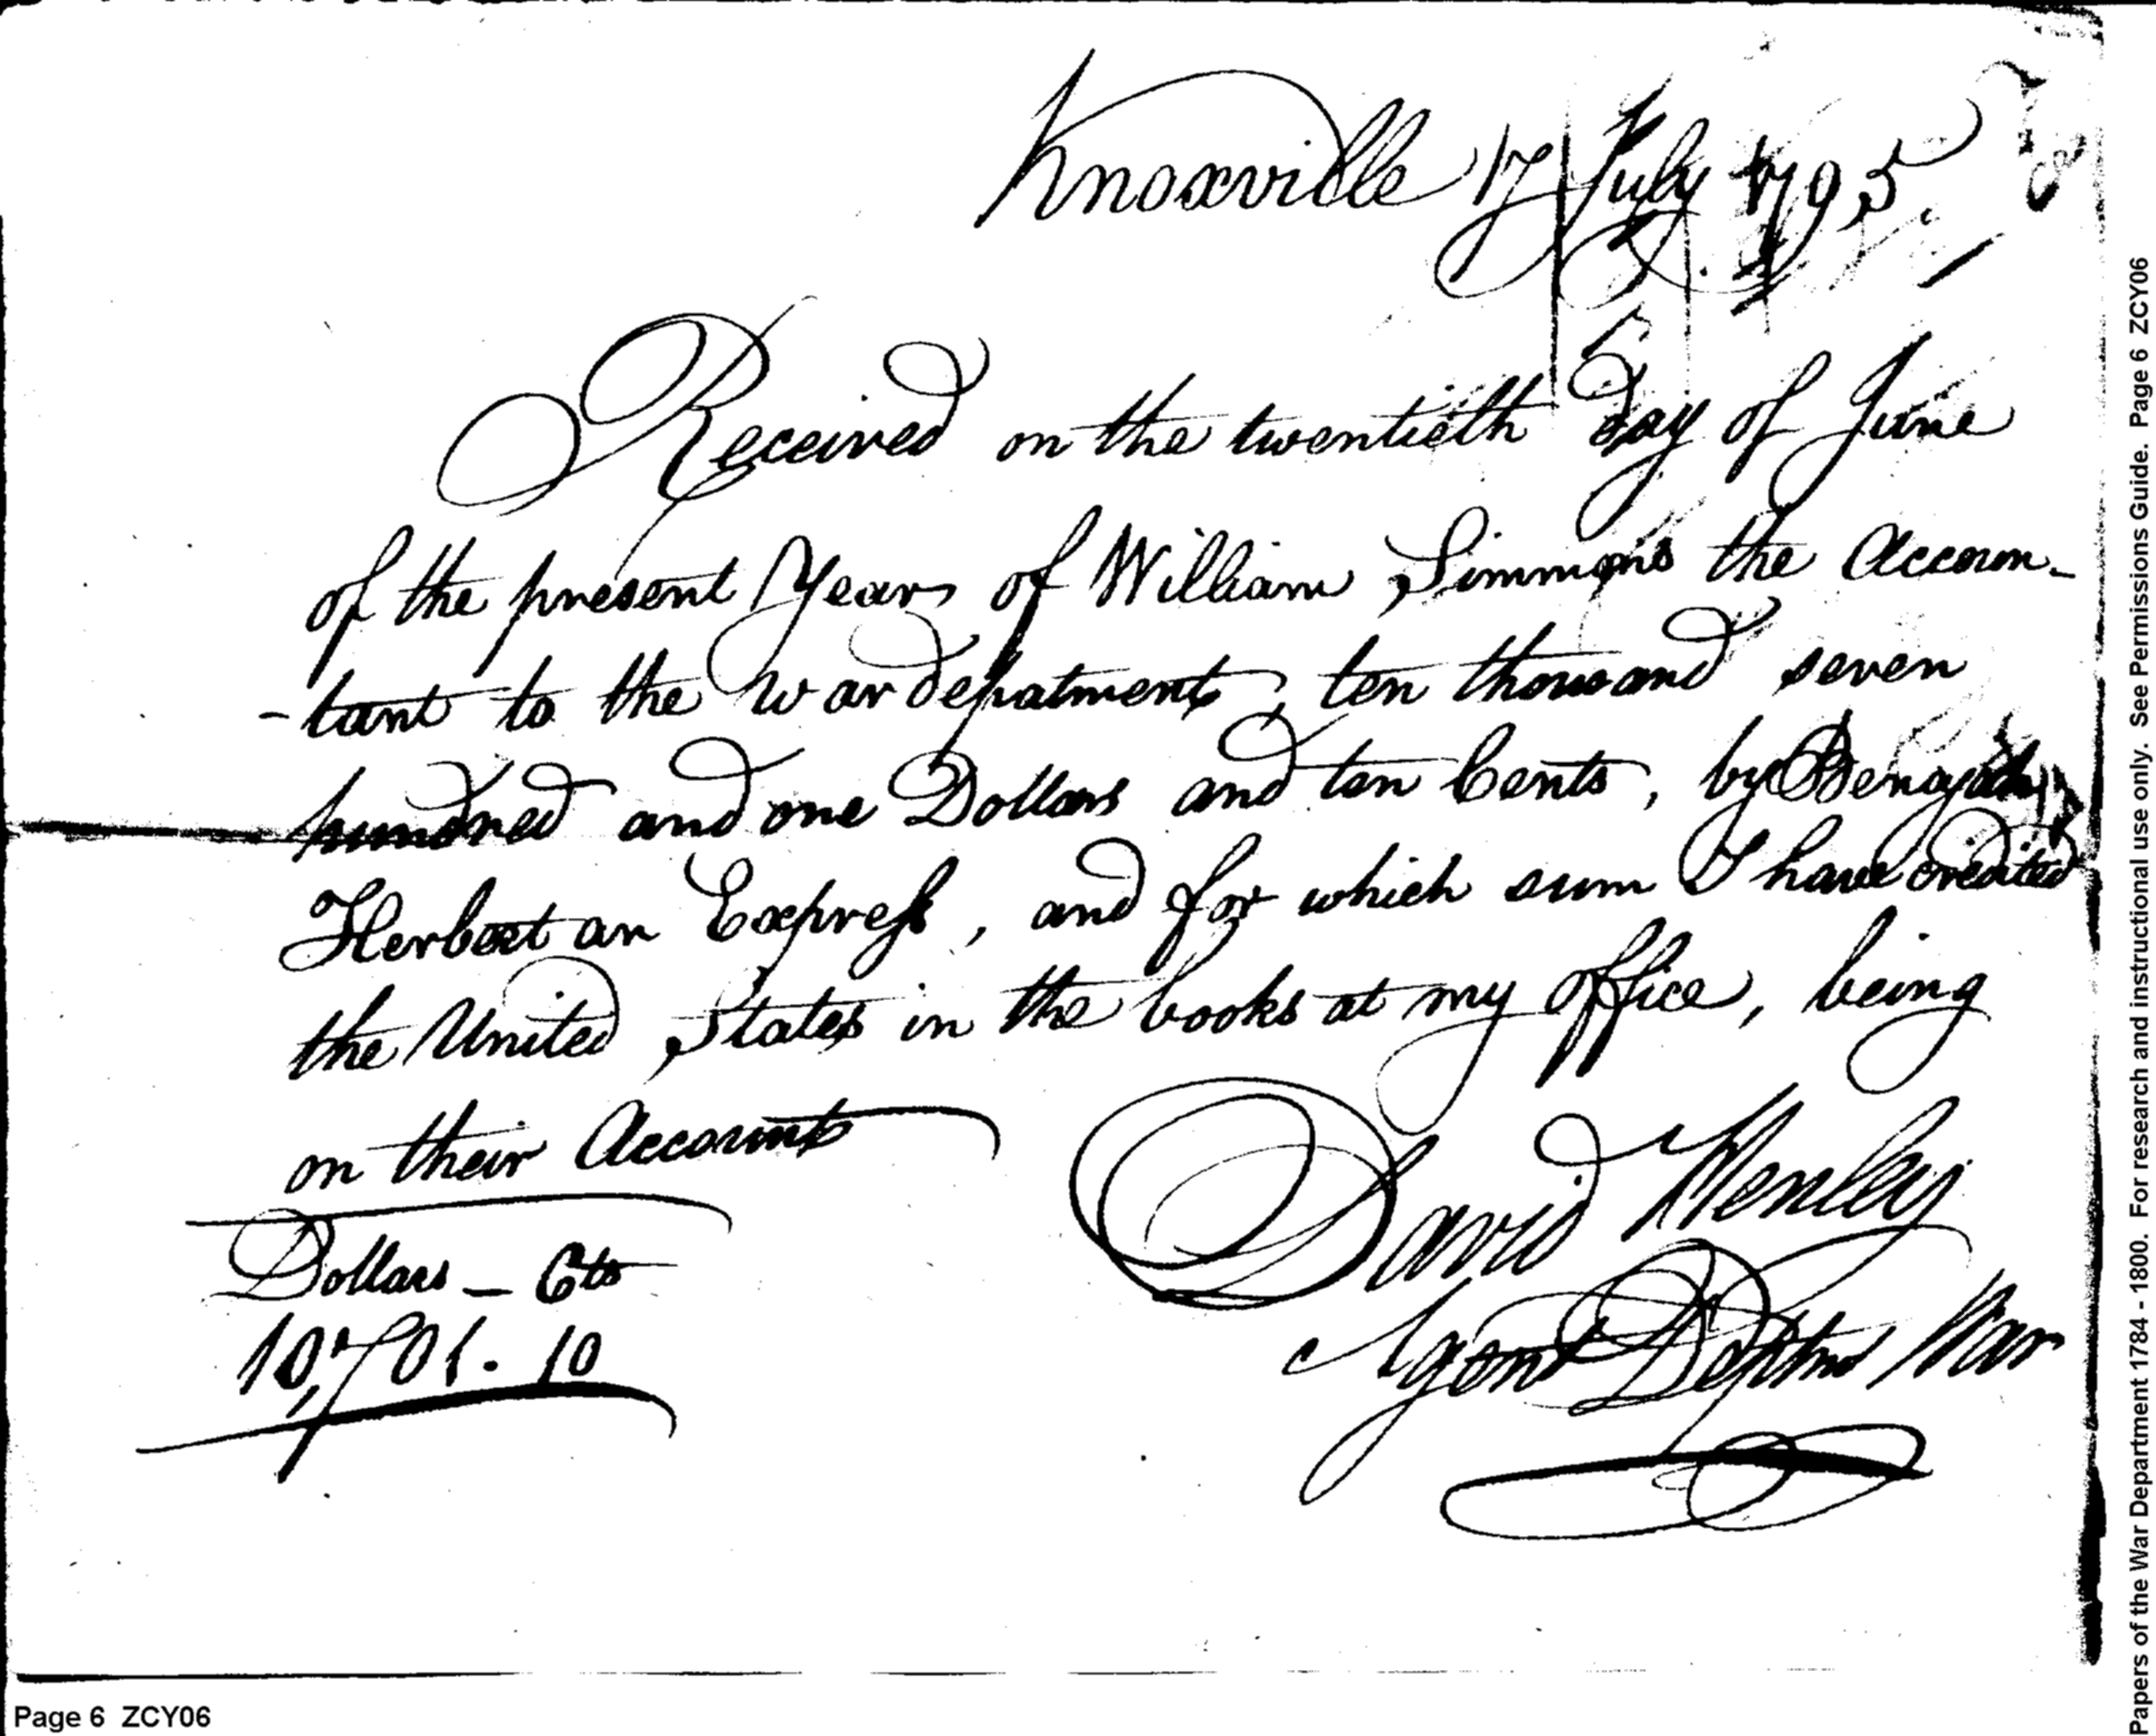 Knoxville 17 July 1795.
Received on the twentieth Day of June
of the present Year, of William Simmons the Accoun-
-tant to the War depatment, ten thousand seven
hundred and one Dollars and ten Cents, by
Herbert an Express, and for which sum I have credited
the United States in the books at my office, being
on their Accounts
David Henley
Agent Deptmt War
Dollars - Cts
10,701. 10
Page 6 ZCY06
Papers of the War Department 1784 - 1800. For research and instructional use only. See Permissions Guide. Page 6 ZCY06